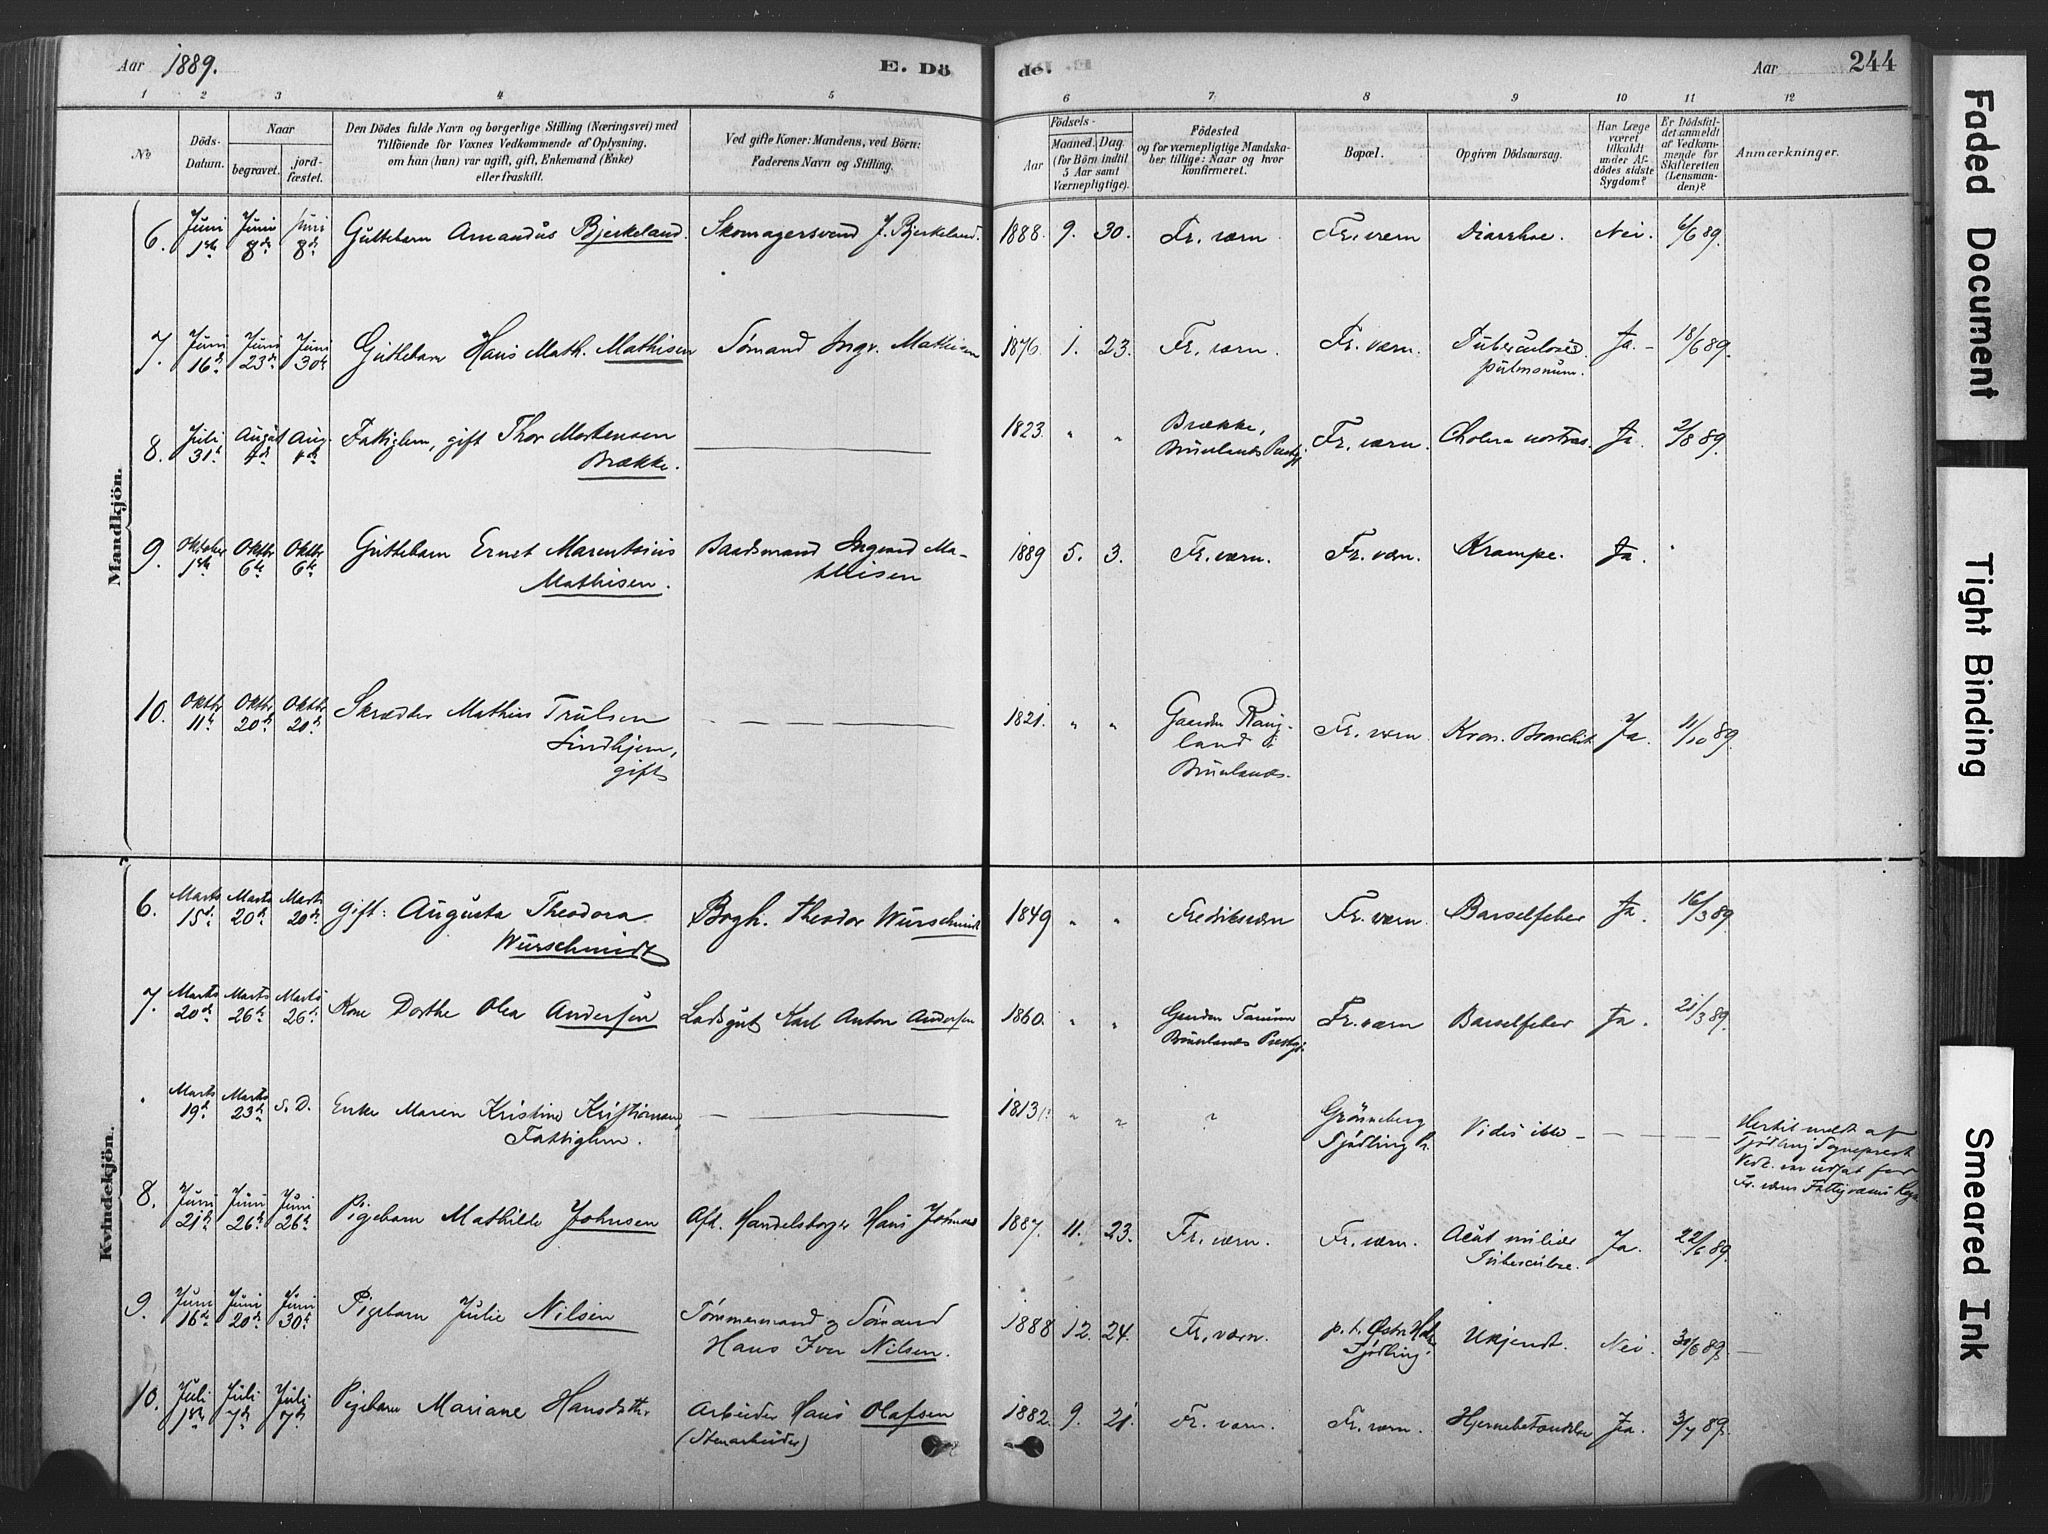 Aar 1889.
E. Dö
de.
Aar
244
1 2 3 4 5 6 7 8 9 10 11 12
No
Döds-
Datum.
Naar
begravet.
jord-
fæstet.
Den Dödes fulde Navn og borgerlige Stilling (Næringsvei) med
Tilföiende for Voxnes Vedkommende af Oplysning,
om han (hun) var ugift, gift, Enkemand (Enke)
eller fraskilt.
Ved gifte Koner: Mandens, ved Börn:
Faderens Navn og Stilling.
Födsels-
Aar
Maaned. Dag.
(for Börn indtil
5 Aar samt
Værnepligtige).
Födested
og for værnepligtige Mandska-
ber tillige: Naar og hvor
konfirmeret.
Bopæl.
Opgiven Dödsaarsag.
Har Læge
været
tilkaldt
under Af-
dödes sidste
Sygdom?
Er Dödsfal-
det anmeldt
af Vedkom-
mende for
Skifteretten
(Lensman-
den)?
Anmærkninger.
Mandkjön.
6. Juni 1ste Juni 8de Juni 8de Guttebarn Amandus Bjerkeland. Skomagersvend J. Bjerkeland. 1888. 9. 30. Fr. værn. Fr. værn Diarrhoe. Nei. 6/6 89.
7. Juni 16de Juni 23de Juni 30te Guttebarn Hans Math. Mathisen Sømand Ingv. Mathisen 1876. 1. 23. Fr. værn. Fr. værn. Tuberculosis
pulmonum. Ja. - 18/6 89.
8. Juli 31te August 4de Aug. 4de Fattiglem, gift Thor Mortensen
Brække. 1823. " " Brække,
Brunlanes Prestgj. Fr. værn. Cholera nostras Ja. 2/8 89.
9. Oktober 1ste Oktbr 6te Oktbr 6te Guttebarn Ernst Marentsius
Mathisen. Baadsmand Ingvald Ma-
thisen 1889 5. 3. Fr. værn. Fr. værn. Krampe. Ja.
10. Oktbr 11te Oktbr 20de Oktbr 20de Skrædder Mathias Trulsen
Lindhjem,
gift 1821. " " Gaarden
land i
Brunlanes. Fr. værn. Kron. Bronchit Ja. 11/10 89.
Kvindekjön.
6. Marts 15de Marts 20de Marts 20de gift: Augusta Theodora
Wurschmidt Bogh. Theodor Wurschmidt 1849 " " Fredriksværn Fr. værn. Barselfeber Ja. 16/3 89.
7. Marts 20de Marts 26de Marts 26de Kone Dorthe Olea Andersen Lodsgut Karl Anton Andersen 1860. " " Gaarden Tanum
Brunlanes Prestgj. Fr. værn Barselfeber Ja. 21/3 89.
Marts 19de Marts 23de s. D. Enke Maren Kristine Kristiansen,
Fattiglem. 1813 " " " Grønneberg
Tjødling Pr. Vides ikke
Hertil meldt af
Tjødling Sogneprest
Fr. værns Fattigvæsens
8. Juni 21de Juni 26de Juni 26de Pigebarn Mathilde Johnsen Afd. Handelsborger Hans Johnsen 1887. 11. 23. Fr. værn. Fr. værn. Acut miliær
Tuberculose. Ja. 22/6 89.
9. Juni 16de Juni 20de Juni 30te Pigebarn Julie Nilsen Tømmermand og Sømand
Hans Iver Nilsen. 1888 12. 24. Fr. værn. p. t. Østre
Tjødling. Ukjendt. Nei. 30/6 89.
10. Juli 1ste Juli 7de Juli 7de Pigebarn Mariane Hansdatter Arbeider Hans Olafsen
(Stenarbeider) 1882. 9. 21. Fr. værn. Fr. værn. Hjernebetændelse Ja. 3/7 89.
Faded Document
Tight Binding
Smeared Ink